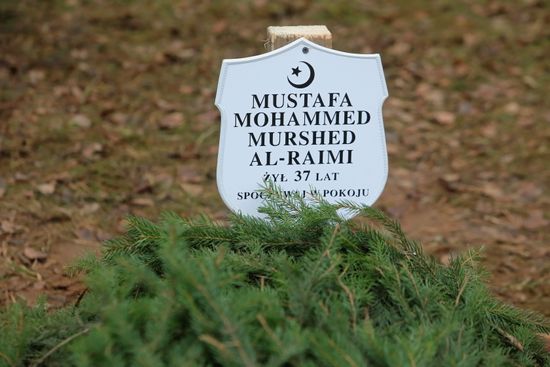 MUSTAFA
MOHAMMED
MURSHED
AL-RAIMI
ŻYŁ 37 LAT
SPOCZYWAJ W POKOJU